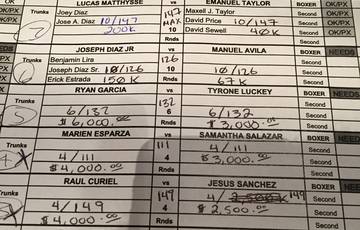 LUCAS MATTHYSSE vs EMANUEL TAYLOR BOXER OK/PX
Trunks Joey Diaz 147 Maxell J. Taylor Second OK/PX
Jose A. Diaz 10/147 MAX David Price 10/147 Second OK/PX
200K 10 David Sewell 40K Second
Rnds Second
JOSEPH DIAZ JR vs MANUEL AVILA BOXER NEEDS
Trunks Benjamin Lira 126 Second
Joseph Diaz Sr. 10/126 10 10/126 Second
Erick Estrada 150K Rnds 67K Second
RYAN GARCIA vs TYRONE LUCKEY BOXER
Trunks 132 Second
6/132 6 6/132 Second
$6,000.00 Rnds $3,000.00 Second
MARIEN ESPARZA vs SAMANTHA SALAZAR BOXER NEED
Trunks 111 Second
4/111 4 4/111 Second
$4,000.00 Rnds $3,000.00 Second
RAUL CURIEL vs JESUS SANCHEZ BOXER NEE
Trunks 149 4/ 149 Second
4/149 4 $2,500.00 Second
$4,000.00 Rnds Second